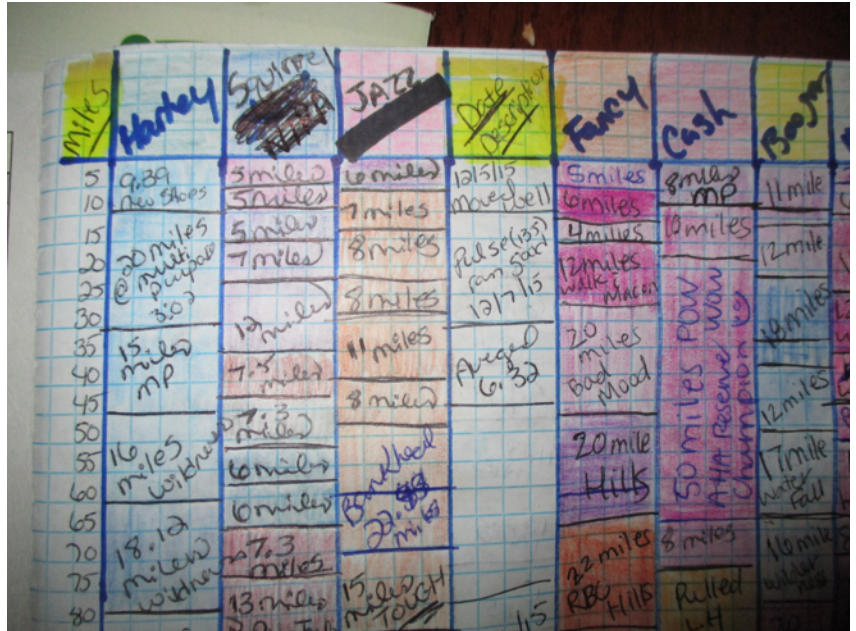 Miles
5
10
15
20
25
30
35
40
45
50
55
60
65
70
75
80
Harley
9.39
new shoes
20 miles
@ multi
purpose
3:07
15
miles
MP
16
miles
wildness
18.12
miles
wildness
Squirrel
5 miles
5 miles
5 miles
7 miles
12 miles
7.5 miles
7.3
miles
6 miles
6 miles
7.3
miles
13 miles
JAZZ
6 miles
7 miles
8 miles
8 miles
11 miles
8 miles
miles
15
miles
TOUGH
Date
Description
12/5/15
moved
Pulse (135)
ran good
12/7/15
Averaged
6.32
Fancy
5 miles
6 miles
4 miles
12 miles
walk
Macon
20
miles
Bad
Mood
20 mile
Hills
22 miles
RBC
Hills
Cash
8 miles
MP
10 miles
50 miles POW
AHA Reserve WOW
Champion
8 miles
Pulled
LH
11 mile
12 mile
18 miles
12 miles
17 mile
Water
Fall
16 mile